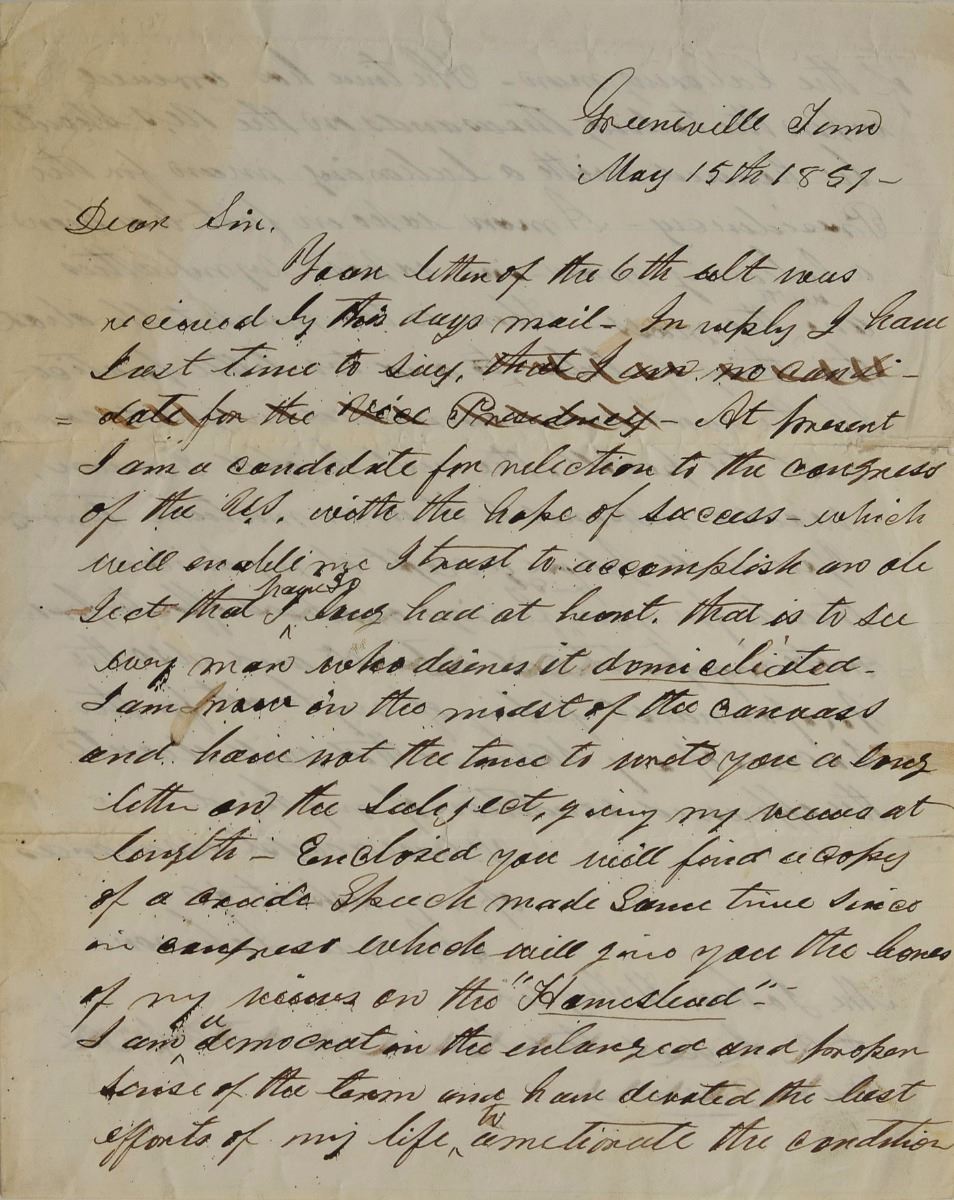 Greeneville Tenn
May 15th 1851-
Dear Sir.
Your letter of the 6th ult was
recieved by this days mail- In reply I have
Just time to say, that I am no candi-
= date for the Vice Presidency - At present
I am a candidate for relection to the congress
of the U.S. with the hope of success - which
will enable me I trust to accomplish an ob
Ject that I have so long had at heart. that is to see
every man who desires it domiciliated -
I am now in the midst of the canvass
and have not the time to write you a long
letter on the Subject, giving my views at
length - Enclosed you will find a copy
of a crude Speech made Some time since
in congress which will give you the bones
of my views on the "Homestead" -
I am a democrat in the enlarged and proper
sense of the term and have devoted the best
efforts of my life, to ameliorate the condition